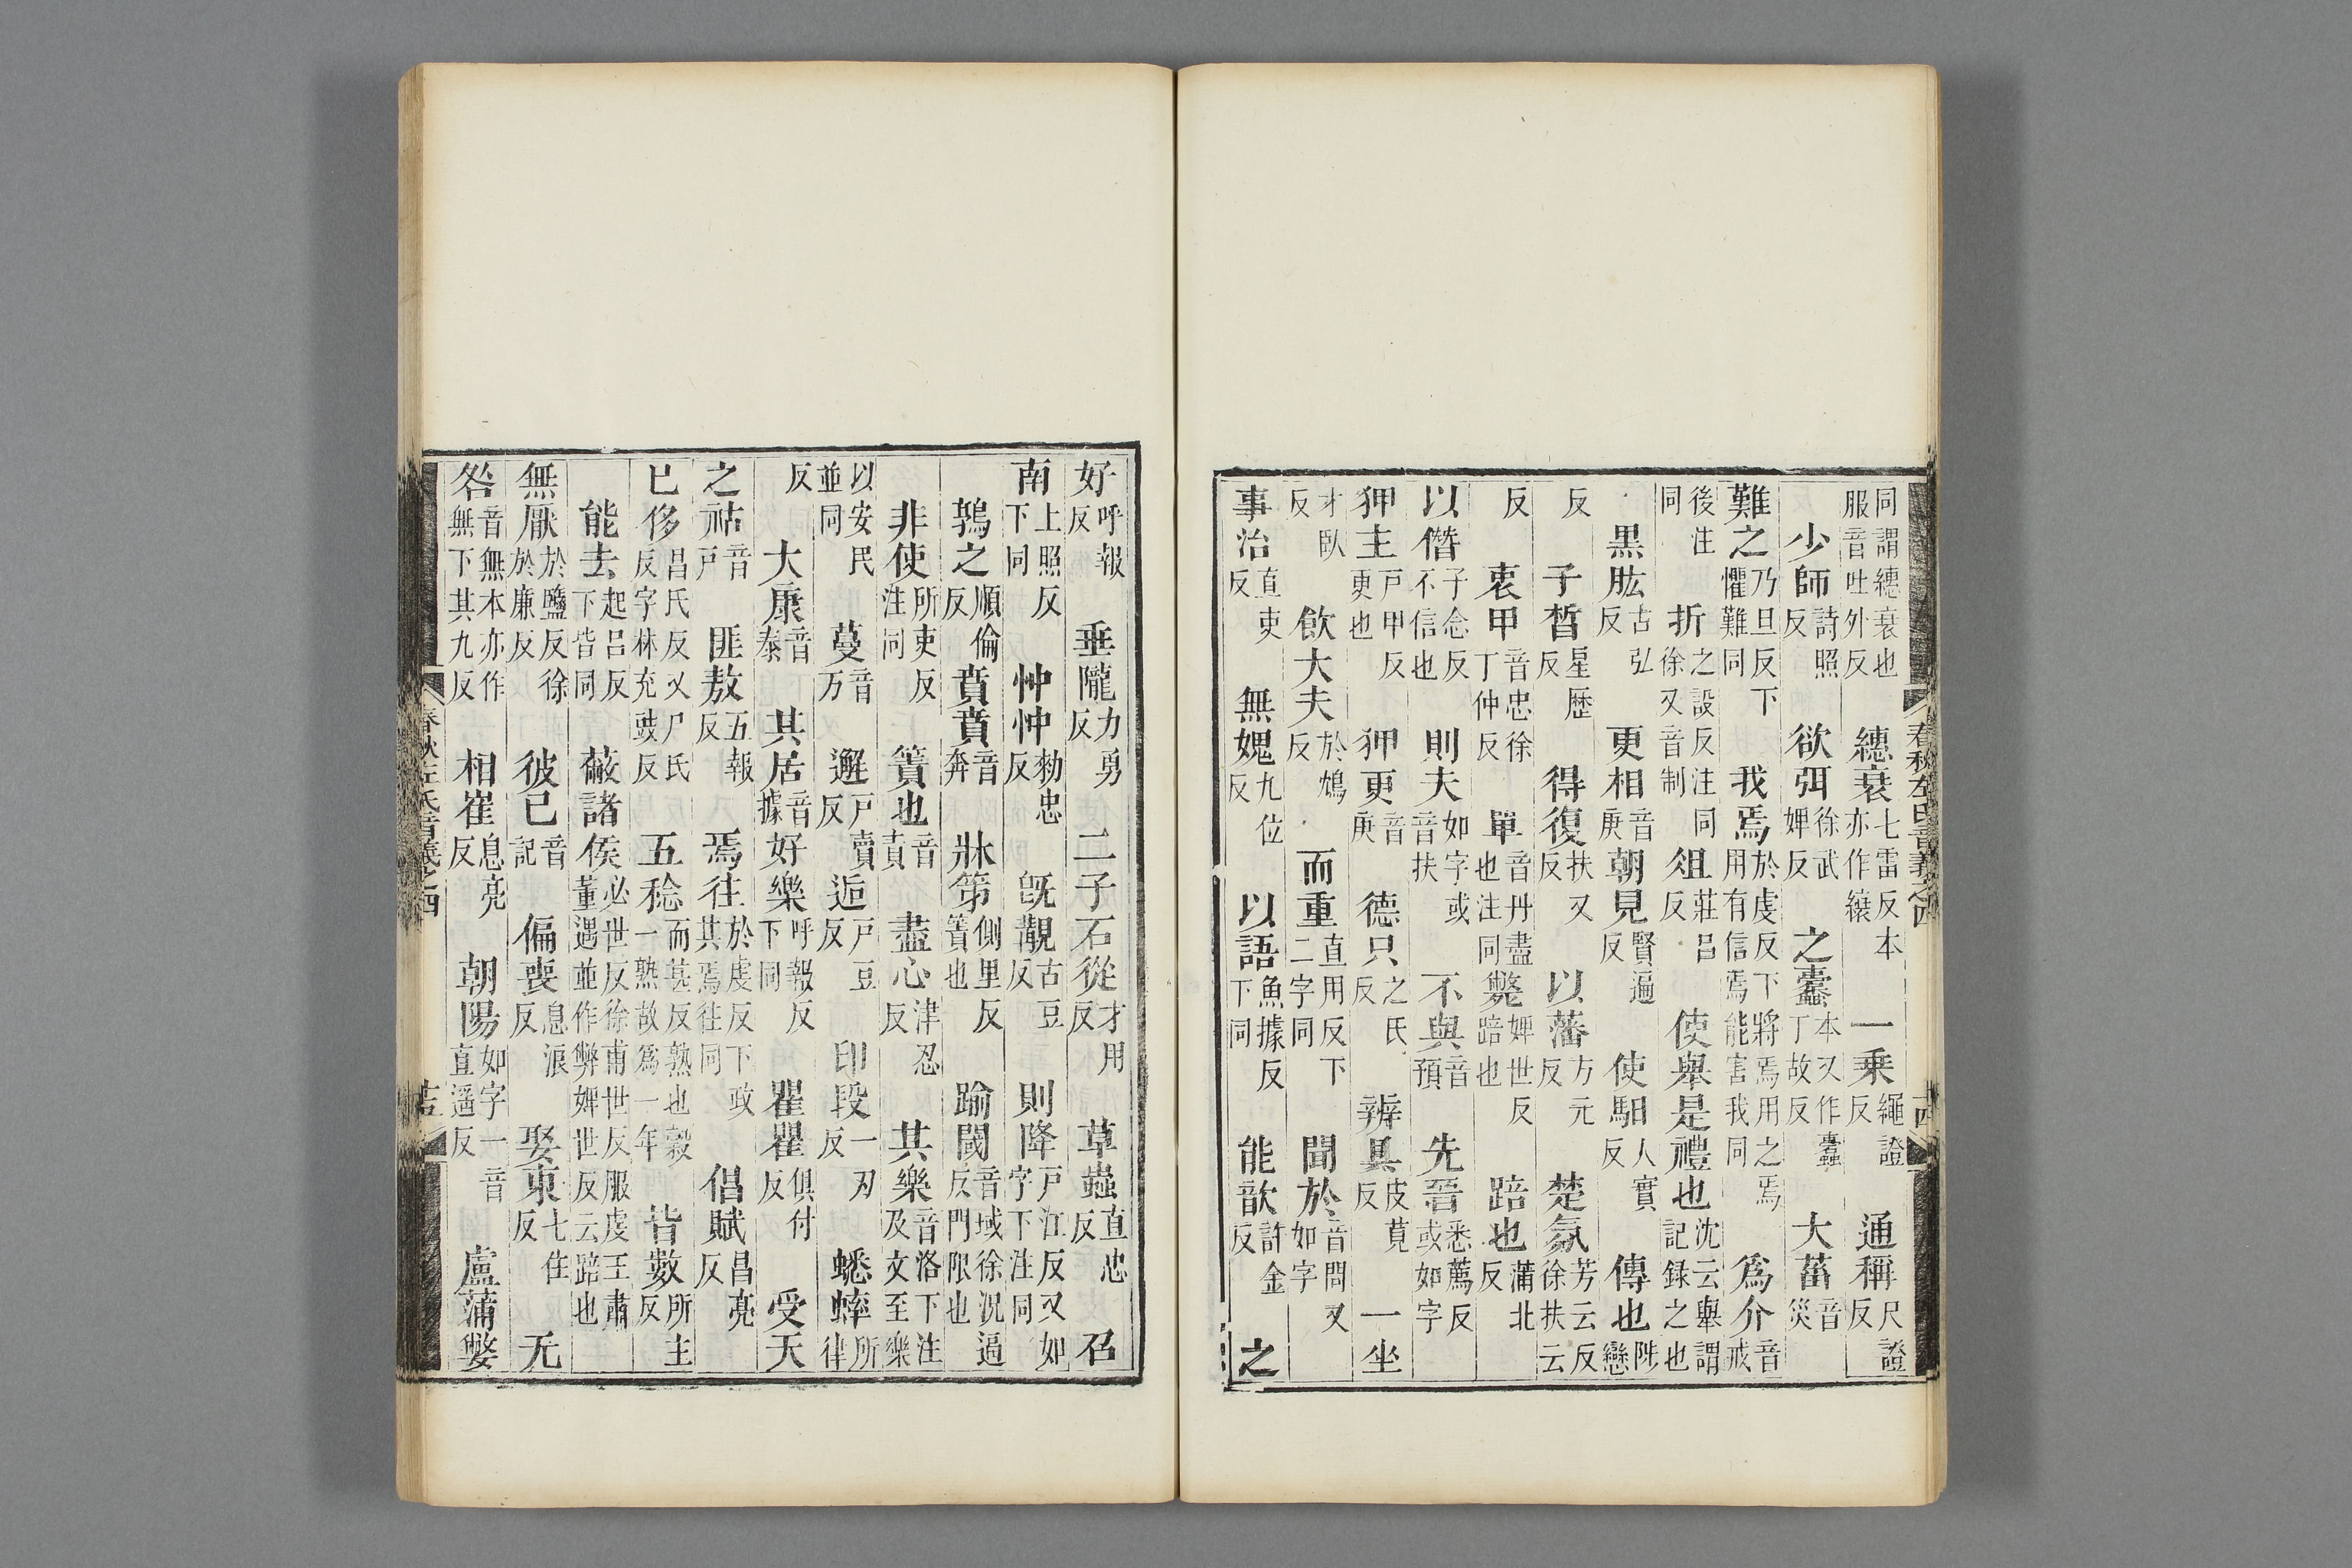 同謂繐衰也服音吐外反 繐衰七雷反本亦作縗 一乘繩證反 通稱尺證反
少師詩照反 欲弭徐武婢反 之蠹本又作螙丁故反 大菑音災
難之乃旦反下懼難同 我焉於虔反下將焉用之焉用有信焉能害我同 爲介音戒
後注同 折之設反注同徐又音制 俎莊呂反 使舉是禮也沈云舉謂記録之也
黒肱古弘反 更相音庚 朝見賢遍反 使馹人實反 傳也陟戀
反 子晳星歷反 得復扶又反 以藩方元反 楚氛芳云反徐扶云
反 衷甲音忠徐丁仲反 單音丹盡也注同 斃婢世反踣也 踣也蒲北反
以僭子念反不信也 則夫如字或音扶 不與音預 先晉悉薦反或如字
狎主戸甲反更也 狎更音庚 德只之氏反 辨具皮莧反 一坐
才臥反 飲大夫於鴆反 而重直用反下二字同 聞於音問又如字
事治直吏反 無媿九位反 以語魚據反下同 能歆許金反 之
好呼報反 垂隴力勇反 二子石從才用反 草蟲直忠反 召
南上照反下同 忡忡勑忠反 旣覯古豆反 則降戸江反又如字下注同
鶉之順倫反 賁賁音奔 牀笫側里反簀也 踰閾音域徐況逼反門限也
非使所吏反注同 簀也音責 盡心津忍反 其樂音洛下注及文至樂
以安民並同 蔓音万 邂戸賣反 逅戸豆反 印段一刃反 蟋蟀所律
反 大康音泰 其居音據 好樂呼報反下同 瞿瞿俱付反 受天
之祜音戸 匪敖五報反 焉往於虔反下政其焉往同 倡賦昌亮反
已侈昌氏反又尸氏反字林充豉反 五稔而甚反熟也穀一熟故爲一年 皆數所主反
能去起呂反下皆同 蔽諸侯必世反徐甫世反服虔王肅董遇並作弊婢世反云踣也
無厭於鹽反徐於廉反 彼已音記 偏喪息浪反 娶東七住反 无
咎音無本亦作無下其九反 相崔息亮反 朝陽如字一音直遥反 盧蒲嫳
春秋左氏音義之四
春秋左氏音義之四